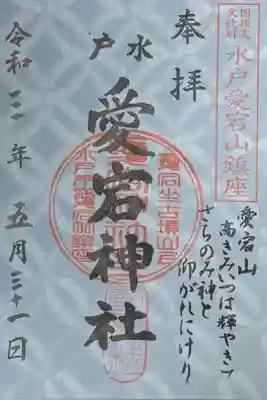 国指定
文化財
水戸愛宕山鎮座
奉拝
水戸
愛宕神社
令和三年五月三十一日
愛宕山
高きみいつは輝やきて
さちのみ神と
仰がれにけり